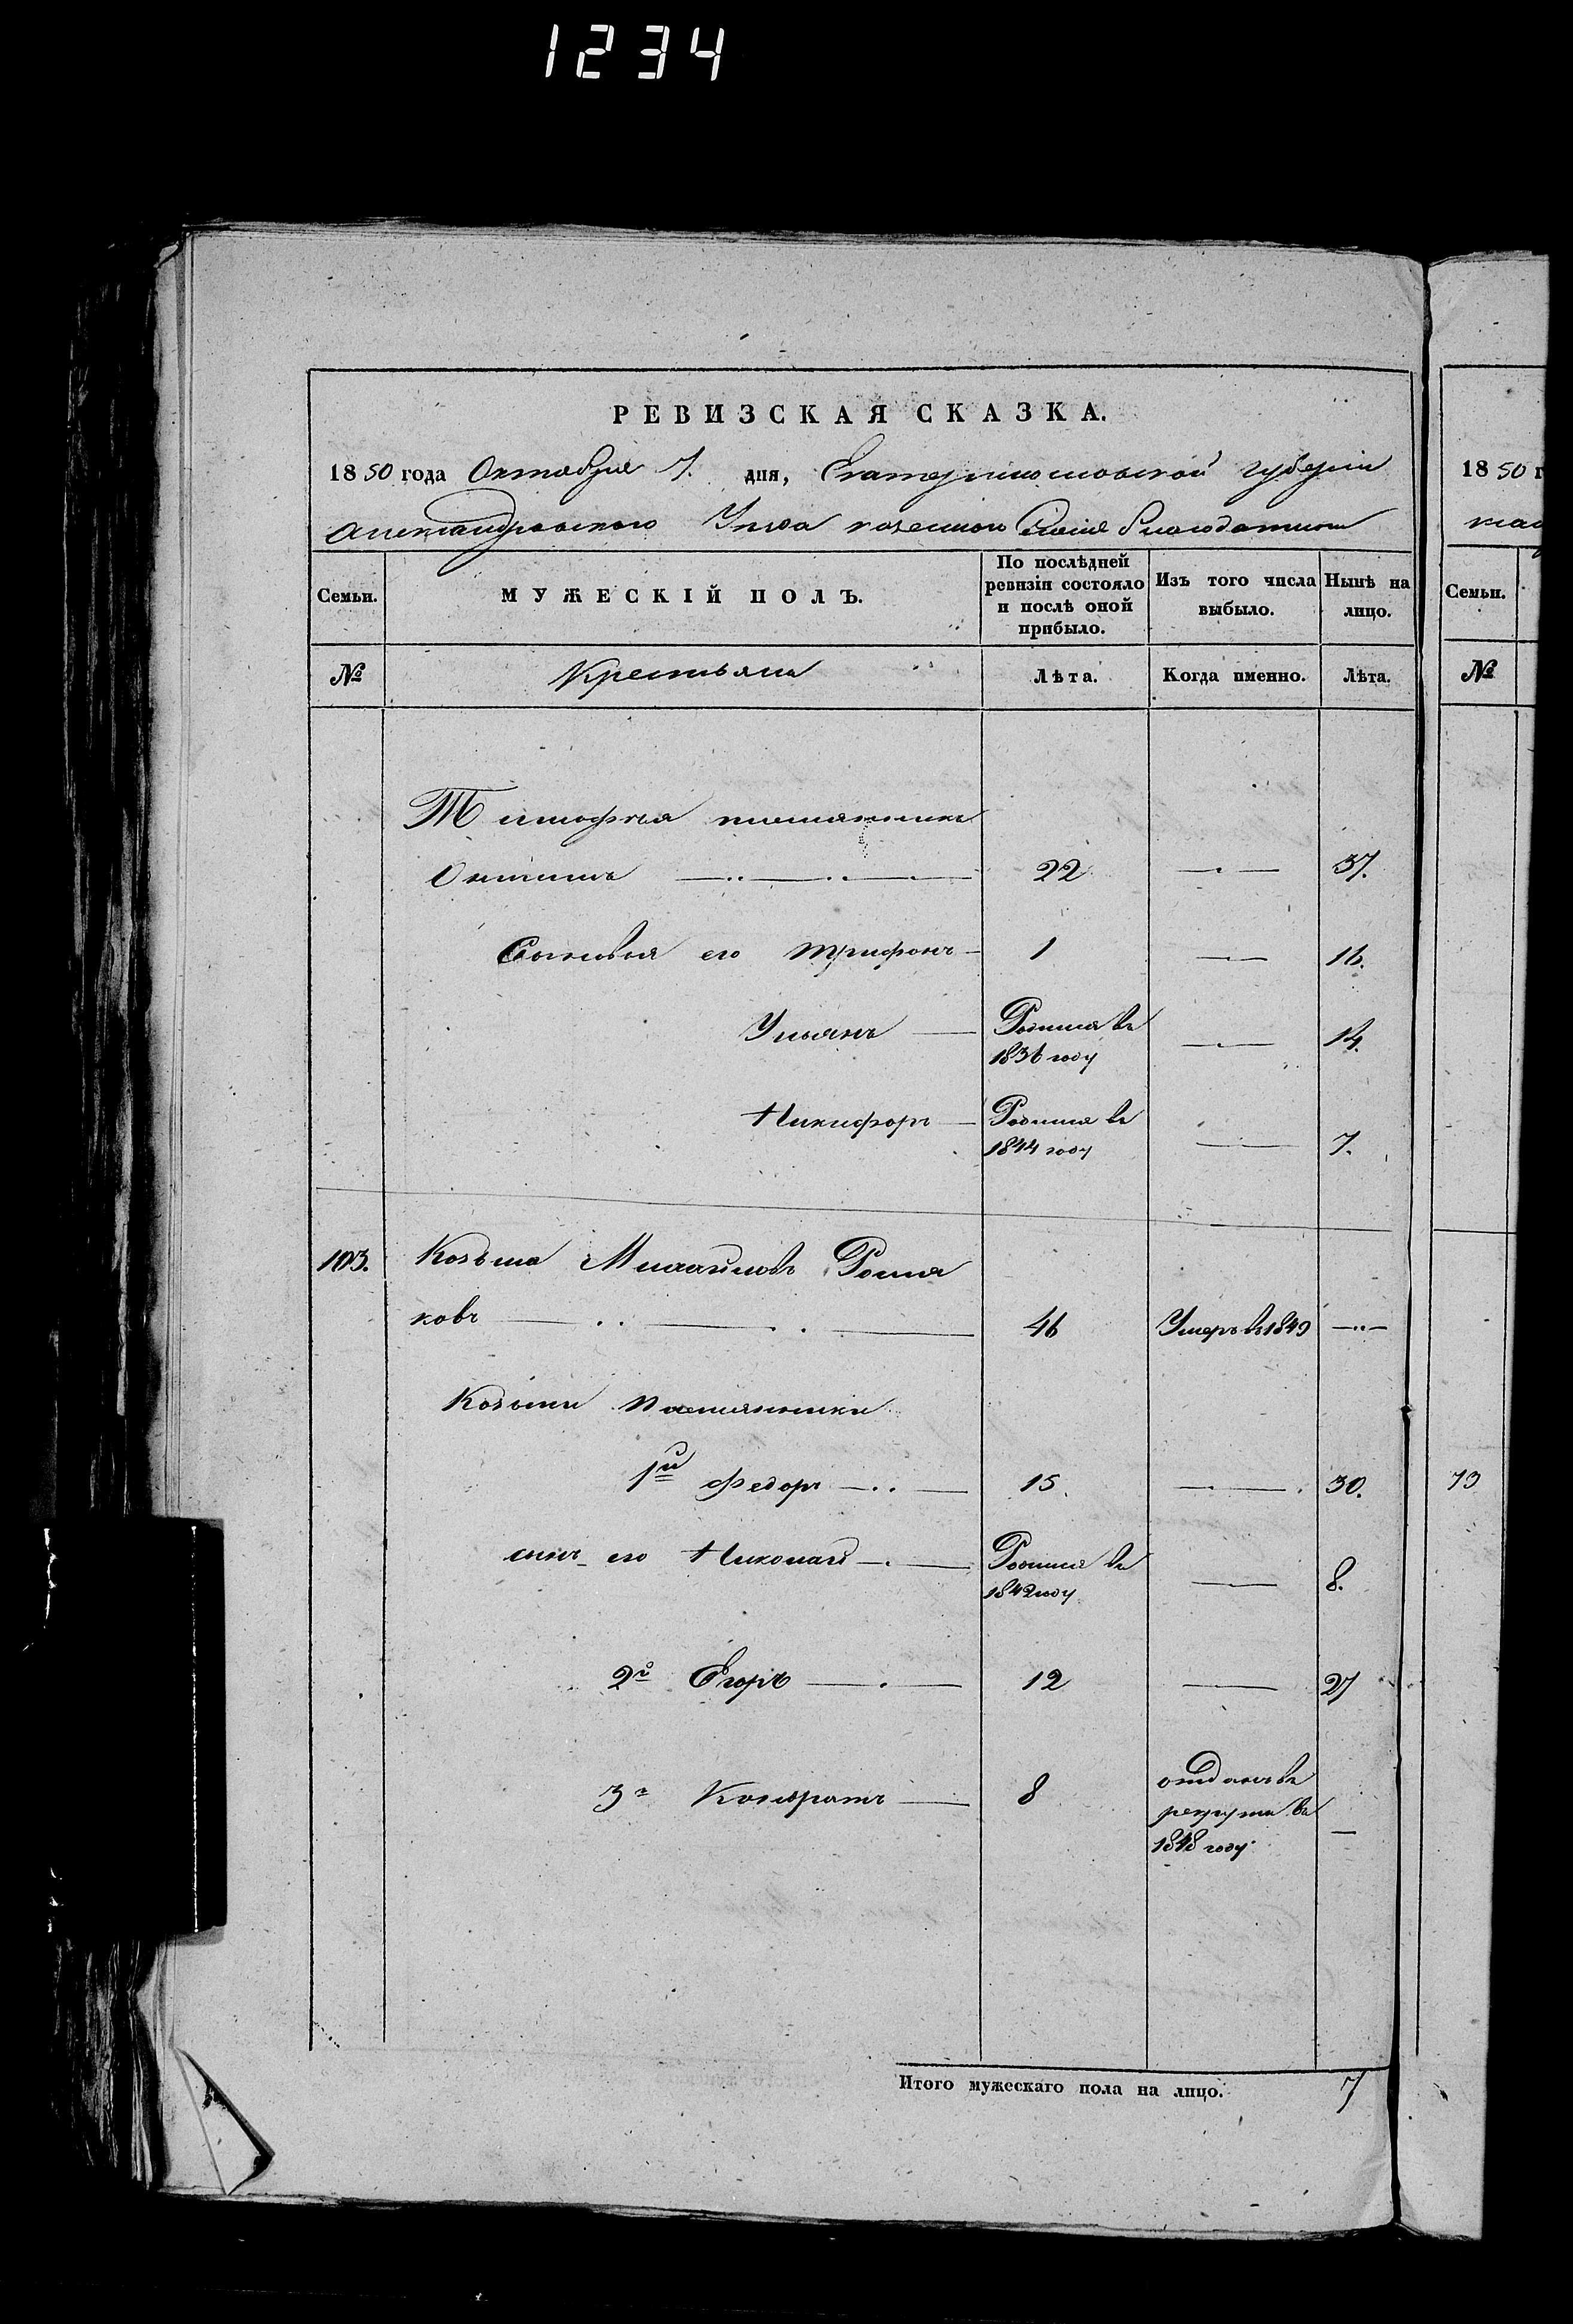 1234
РЕВИЗСКАЯ СКАЗКА.
1850 года Октября 7. дня, Екатеринославской губерніи
Александровского Уезда казенного Селенія Благодатного
Семьи.
МУЖЕСКІЙ ПОЛЪ.
По послѣдней ревизіи состояло и послѣ оной прибыло.
Изъ того числа выбыло.
Нынѣ на лицо.
№ Крестьяне Лѣта. Когда именно. Лѣта.
Тимофея племянникъ
22 37.
Сыновья его Трифонъ 1 16.
Ульянъ Родился въ 1836 году 14.
Никифоръ Родился въ 1844 году 7.
103. Козьма Михайловъ Поля
ковъ 46 Умеръ въ 1849
Козьмы племянники
1й Федоръ 15. 30.
сынъ его Николай Родился въ 1842 году 8.
2й Егоръ 12 27
3й Кондратъ 8 отданъ въ рекруты въ 1848 году
Итого мужескаго пола на лицо. 7
1850 г
Семьи.
№
73